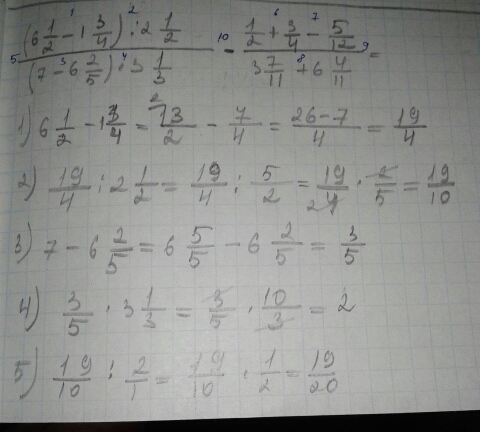 5 (6 1/2 - 1 3/4) : 2 1/2 / (7 - 6 2/5) · 3 1/3 - 1/2 + 3/4 - 5/12 / 3 7/11 + 6 4/11 =
1) 6 1/2 - 1 3/4 = 13/2 - 7/4 = 26-7/4 = 19/4
2) 19/4 : 2 1/2 = 19/4 : 5/2 = 19/4 · 2/5 = 19/10
3) 7 - 6 2/5 = 6 5/5 - 6 2/5 = 3/5
4) 3/5 · 3 1/3 = 3/5 · 10/3 = 2
5) 19/10 : 2/1 = 19/10 · 1/2 = 19/20